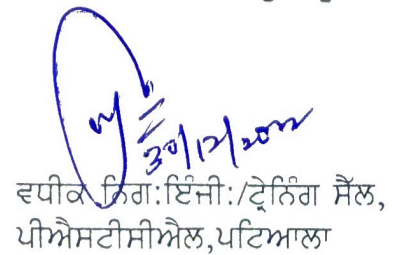 30/12/2022
ਵਧੀਕ ਨਿਗ:ਇੰਜੀ:/ਟ੍ਰੇਨਿੰਗ ਸੈੱਲ,
ਪੀਐਸਟੀਸੀਐਲ,ਪਟਿਆਲਾ